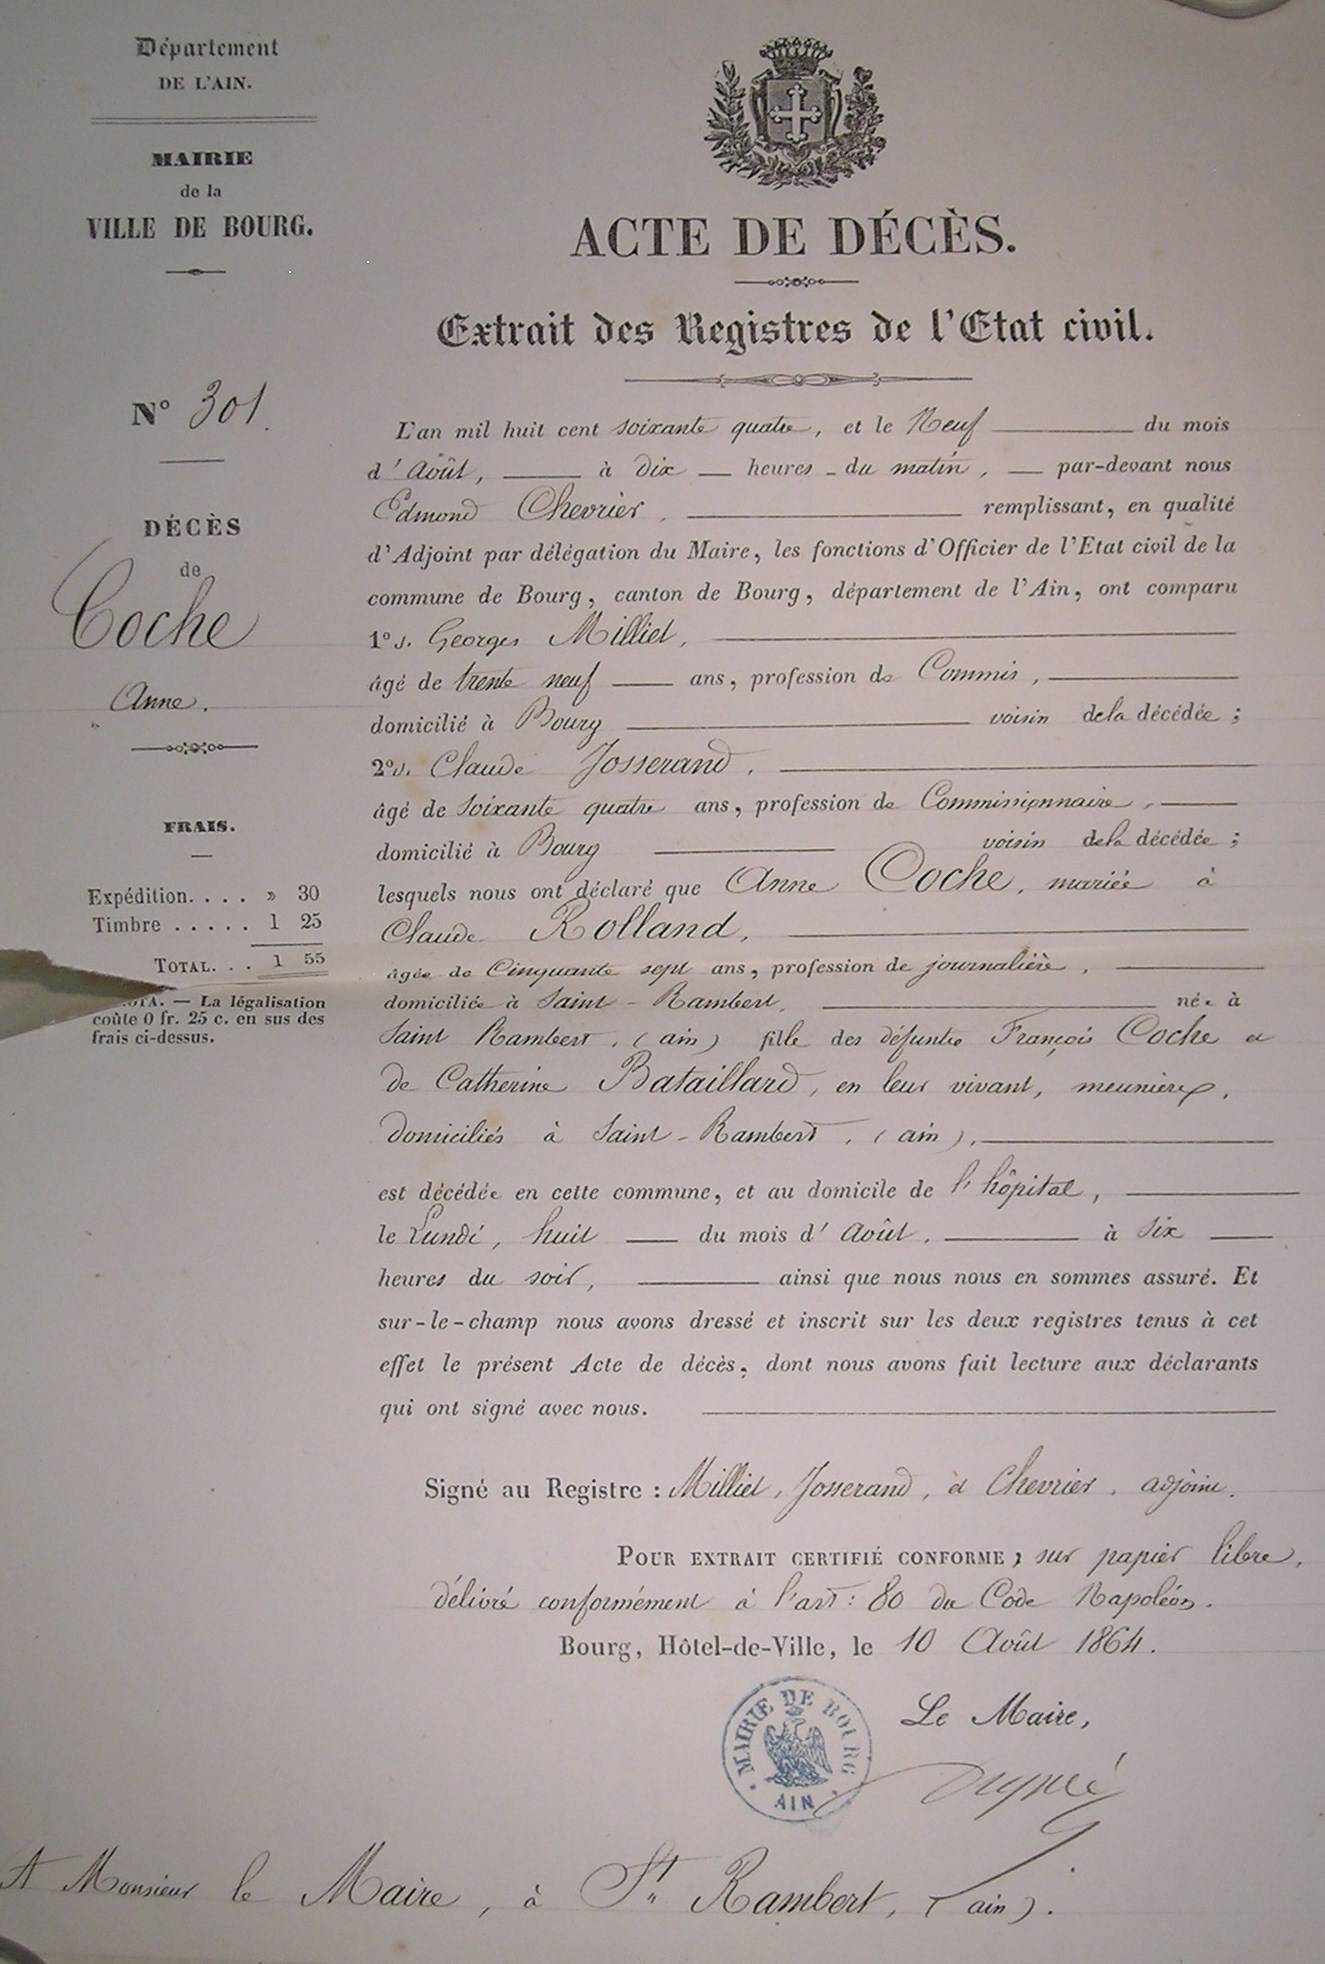 Département
DE L'AIN.
MAIRIE
de la
VILLE DE BOURG.
N° 301.
DÉCÈS
de
Coche
Anne.
FRAIS.
Expédition. . . . » 30
Timbre . . . . . 1 25
TOTAL. . . 1 55
— La légalisation
coûte 0 fr. 25 c. en sus des
frais ci-dessus.
ACTE DE DÉCÈS.
Extrait des Registres de l'Etat civil.
L'an mil huit cent soixante quatre, et le Neuf du mois
d'Août, à dix heures du matin, par-devant nous
Edmond Chevrier, remplissant, en qualité
d'Adjoint par délégation du Maire, les fonctions d'Officier de l'Etat civil de la
commune de Bourg, canton de Bourg, département de l'Ain, ont comparu
1° s. Georges Milliet,
âgé de trente neuf ans, profession de Commis,
domicilié à Bourg voisin de la décédée ;
2° s. Claude Josserand,
âgé de soixante quatre ans, profession de Commissionnaire,
domicilié à Bourg voisin de la décédée ;
lesquels nous ont déclaré que Anne Coche, mariée à
Claude Rolland,
âgée de Cinquante sept ans, profession de journalière,
domiciliée à Saint-Rambert, née à
Saint Rambert, (ain) fille des défunts François Coche et
de Catherine Bataillard, en leur vivant, meuniers,
domiciliés à Saint-Rambert, (ain),
est décédée en cette commune, et au domicile de l'hôpital,
le Lundi, huit du mois d'Août, à six
heures du soir, ainsi que nous nous en sommes assuré. Et
sur-le-champ nous avons dressé et inscrit sur les deux registres tenus à cet
effet le présent Acte de décès, dont nous avons fait lecture aux déclarants
qui ont signé avec nous.
Signé au Registre : Milliet, Josserand, et Chevrier, adjoint.
POUR EXTRAIT CERTIFIÉ CONFORME, sur papier libre,
délivré conformément à l'art: 80 du Code Napoléon.
Bourg, Hôtel-de-Ville, le 10 Août 1864.
Le Maire,
MAIRIE DE BOURG
AIN
A Monsieur le Maire, à St Rambert, (ain).